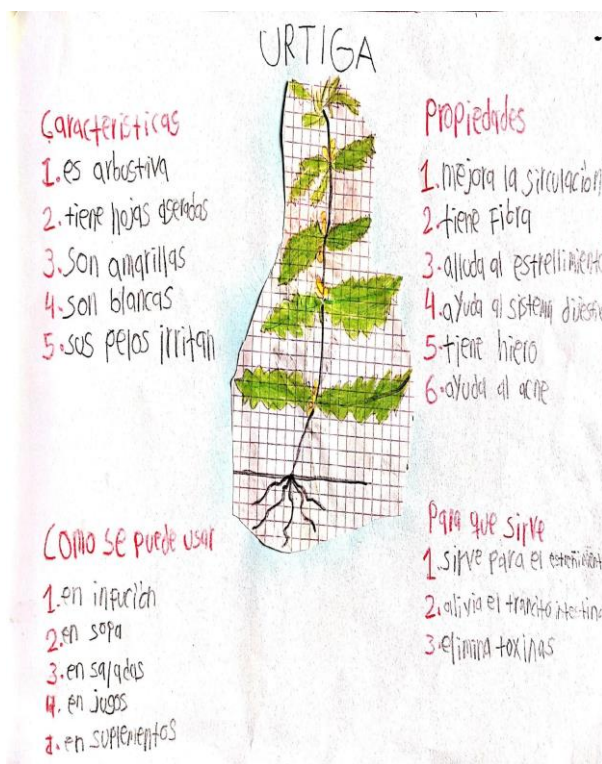 URTIGA
Caracteristicas
1. es arbustiva
2. tiene hojas aseradas
3. son amarillas
4. son blancas
5. sus pelos irritan
Propiedades
1. mejora la sirculación
2. tiene Fibra
3. alluda al estrellimiento
4. ayuda al sistema
5. tiene hiero
6. ayuda al acne
Como se puede usar
1. en infución
2. en sopa
3. en saladas
4. en jugos
1. en suplementos
Para que sirve
1. sirve para el
2. alivia el trancito
3. elimina toxinas